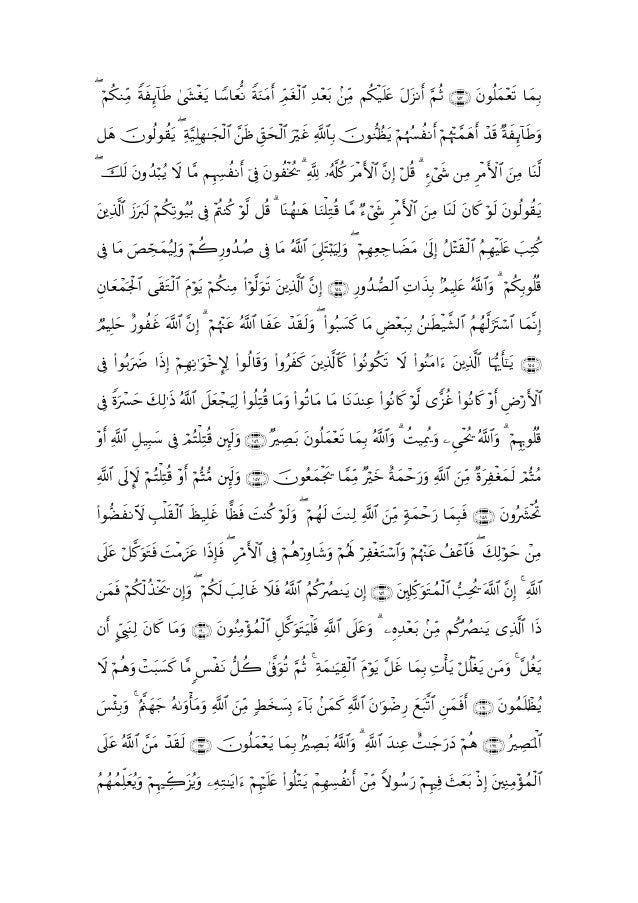 بِمَا تَعْمَلُونَ ﴿١٥٣﴾ ثُمَّ أَنزَلَ عَلَيْكُم مِّنۢ بَعْدِ ٱلْغَمِّ أَمَنَةً نُّعَاسًا يَغْشَىٰ طَآئِفَةً مِّنكُمْ ۖ
وَطَآئِفَةٌ قَدْ أَهَمَّتْهُمْ أَنفُسُهُمْ يَظُنُّونَ بِٱللَّهِ غَيْرَ ٱلْحَقِّ ظَنَّ ٱلْجَٰهِلِيَّةِ ۖ يَقُولُونَ هَل
لَّنَا مِنَ ٱلْأَمْرِ مِن شَىْءٍ ۗ قُلْ إِنَّ ٱلْأَمْرَ كُلَّهُۥ لِلَّهِ ۗ يُخْفُونَ فِىٓ أَنفُسِهِم مَّا لَا يُبْدُونَ لَكَ ۖ
يَقُولُونَ لَوْ كَانَ لَنَا مِنَ ٱلْأَمْرِ شَىْءٌ مَّا قُتِلْنَا هَٰهُنَا ۗ قُل لَّوْ كُنتُمْ فِى بُيُوتِكُمْ لَبَرَزَ ٱلَّذِينَ
كُتِبَ عَلَيْهِمُ ٱلْقَتْلُ إِلَىٰ مَضَاجِعِهِمْ ۖ وَلِيَبْتَلِىَ ٱللَّهُ مَا فِى صُدُورِكُمْ وَلِيُمَحِّصَ مَا فِى
قُلُوبِكُمْ ۗ وَٱللَّهُ عَلِيمٌۢ بِذَاتِ ٱلصُّدُورِ ﴿١٥٤﴾ إِنَّ ٱلَّذِينَ تَوَلَّوْا۟ مِنكُمْ يَوْمَ ٱلْتَقَى ٱلْجَمْعَانِ
إِنَّمَا ٱسْتَزَلَّهُمُ ٱلشَّيْطَٰنُ بِبَعْضِ مَا كَسَبُوا۟ ۖ وَلَقَدْ عَفَا ٱللَّهُ عَنْهُمْ ۗ إِنَّ ٱللَّهَ غَفُورٌ حَلِيمٌ
﴿١٥٥﴾ يَٰٓأَيُّهَا ٱلَّذِينَ ءَامَنُوا۟ لَا تَكُونُوا۟ كَٱلَّذِينَ كَفَرُوا۟ وَقَالُوا۟ لِإِخْوَٰنِهِمْ إِذَا ضَرَبُوا۟ فِى
ٱلْأَرْضِ أَوْ كَانُوا۟ غُزًّى لَّوْ كَانُوا۟ عِندَنَا مَا مَاتُوا۟ وَمَا قُتِلُوا۟ لِيَجْعَلَ ٱللَّهُ ذَٰلِكَ حَسْرَةً فِى
قُلُوبِهِمْ ۗ وَٱللَّهُ يُحْىِۦ وَيُمِيتُ ۗ وَٱللَّهُ بِمَا تَعْمَلُونَ بَصِيرٌ ﴿١٥٦﴾ وَلَئِن قُتِلْتُمْ فِى سَبِيلِ ٱللَّهِ أَوْ
مُتُّمْ لَمَغْفِرَةٌ مِّنَ ٱللَّهِ وَرَحْمَةٌ خَيْرٌ مِّمَّا يَجْمَعُونَ ﴿١٥٧﴾ وَلَئِن مُّتُّمْ أَوْ قُتِلْتُمْ لَإِلَى ٱللَّهِ
تُحْشَرُونَ ﴿١٥٨﴾ فَبِمَا رَحْمَةٍ مِّنَ ٱللَّهِ لِنتَ لَهُمْ ۖ وَلَوْ كُنتَ فَظًّا غَلِيظَ ٱلْقَلْبِ لَٱنفَضُّوا۟
مِنْ حَوْلِكَ ۖ فَٱعْفُ عَنْهُمْ وَٱسْتَغْفِرْ لَهُمْ وَشَاوِرْهُمْ فِى ٱلْأَمْرِ ۖ فَإِذَا عَزَمْتَ فَتَوَكَّلْ عَلَى
ٱللَّهِ ۚ إِنَّ ٱللَّهَ يُحِبُّ ٱلْمُتَوَكِّلِينَ ﴿١٥٩﴾ إِن يَنصُرْكُمُ ٱللَّهُ فَلَا غَالِبَ لَكُمْ ۖ وَإِن يَخْذُلْكُمْ فَمَن
ذَا ٱلَّذِى يَنصُرُكُم مِّنۢ بَعْدِهِۦ ۗ وَعَلَى ٱللَّهِ فَلْيَتَوَكَّلِ ٱلْمُؤْمِنُونَ ﴿١٦٠﴾ وَمَا كَانَ لِنَبِىٍّ أَن
يَغُلَّ ۚ وَمَن يَغْلُلْ يَأْتِ بِمَا غَلَّ يَوْمَ ٱلْقِيَٰمَةِ ۚ ثُمَّ تُوَفَّىٰ كُلُّ نَفْسٍ مَّا كَسَبَتْ وَهُمْ لَا
يُظْلَمُونَ ﴿١٦١﴾ أَفَمَنِ ٱتَّبَعَ رِضْوَٰنَ ٱللَّهِ كَمَنۢ بَآءَ بِسَخَطٍ مِّنَ ٱللَّهِ وَمَأْوَىٰهُ جَهَنَّمُ ۚ وَبِئْسَ
ٱلْمَصِيرُ ﴿١٦٢﴾ هُمْ دَرَجَٰتٌ عِندَ ٱللَّهِ ۗ وَٱللَّهُ بَصِيرٌۢ بِمَا يَعْمَلُونَ ﴿١٦٣﴾ لَقَدْ مَنَّ ٱللَّهُ عَلَى
ٱلْمُؤْمِنِينَ إِذْ بَعَثَ فِيهِمْ رَسُولًا مِّنْ أَنفُسِهِمْ يَتْلُوا۟ عَلَيْهِمْ ءَايَٰتِهِۦ وَيُزَكِّيهِمْ وَيُعَلِّمُهُمُ